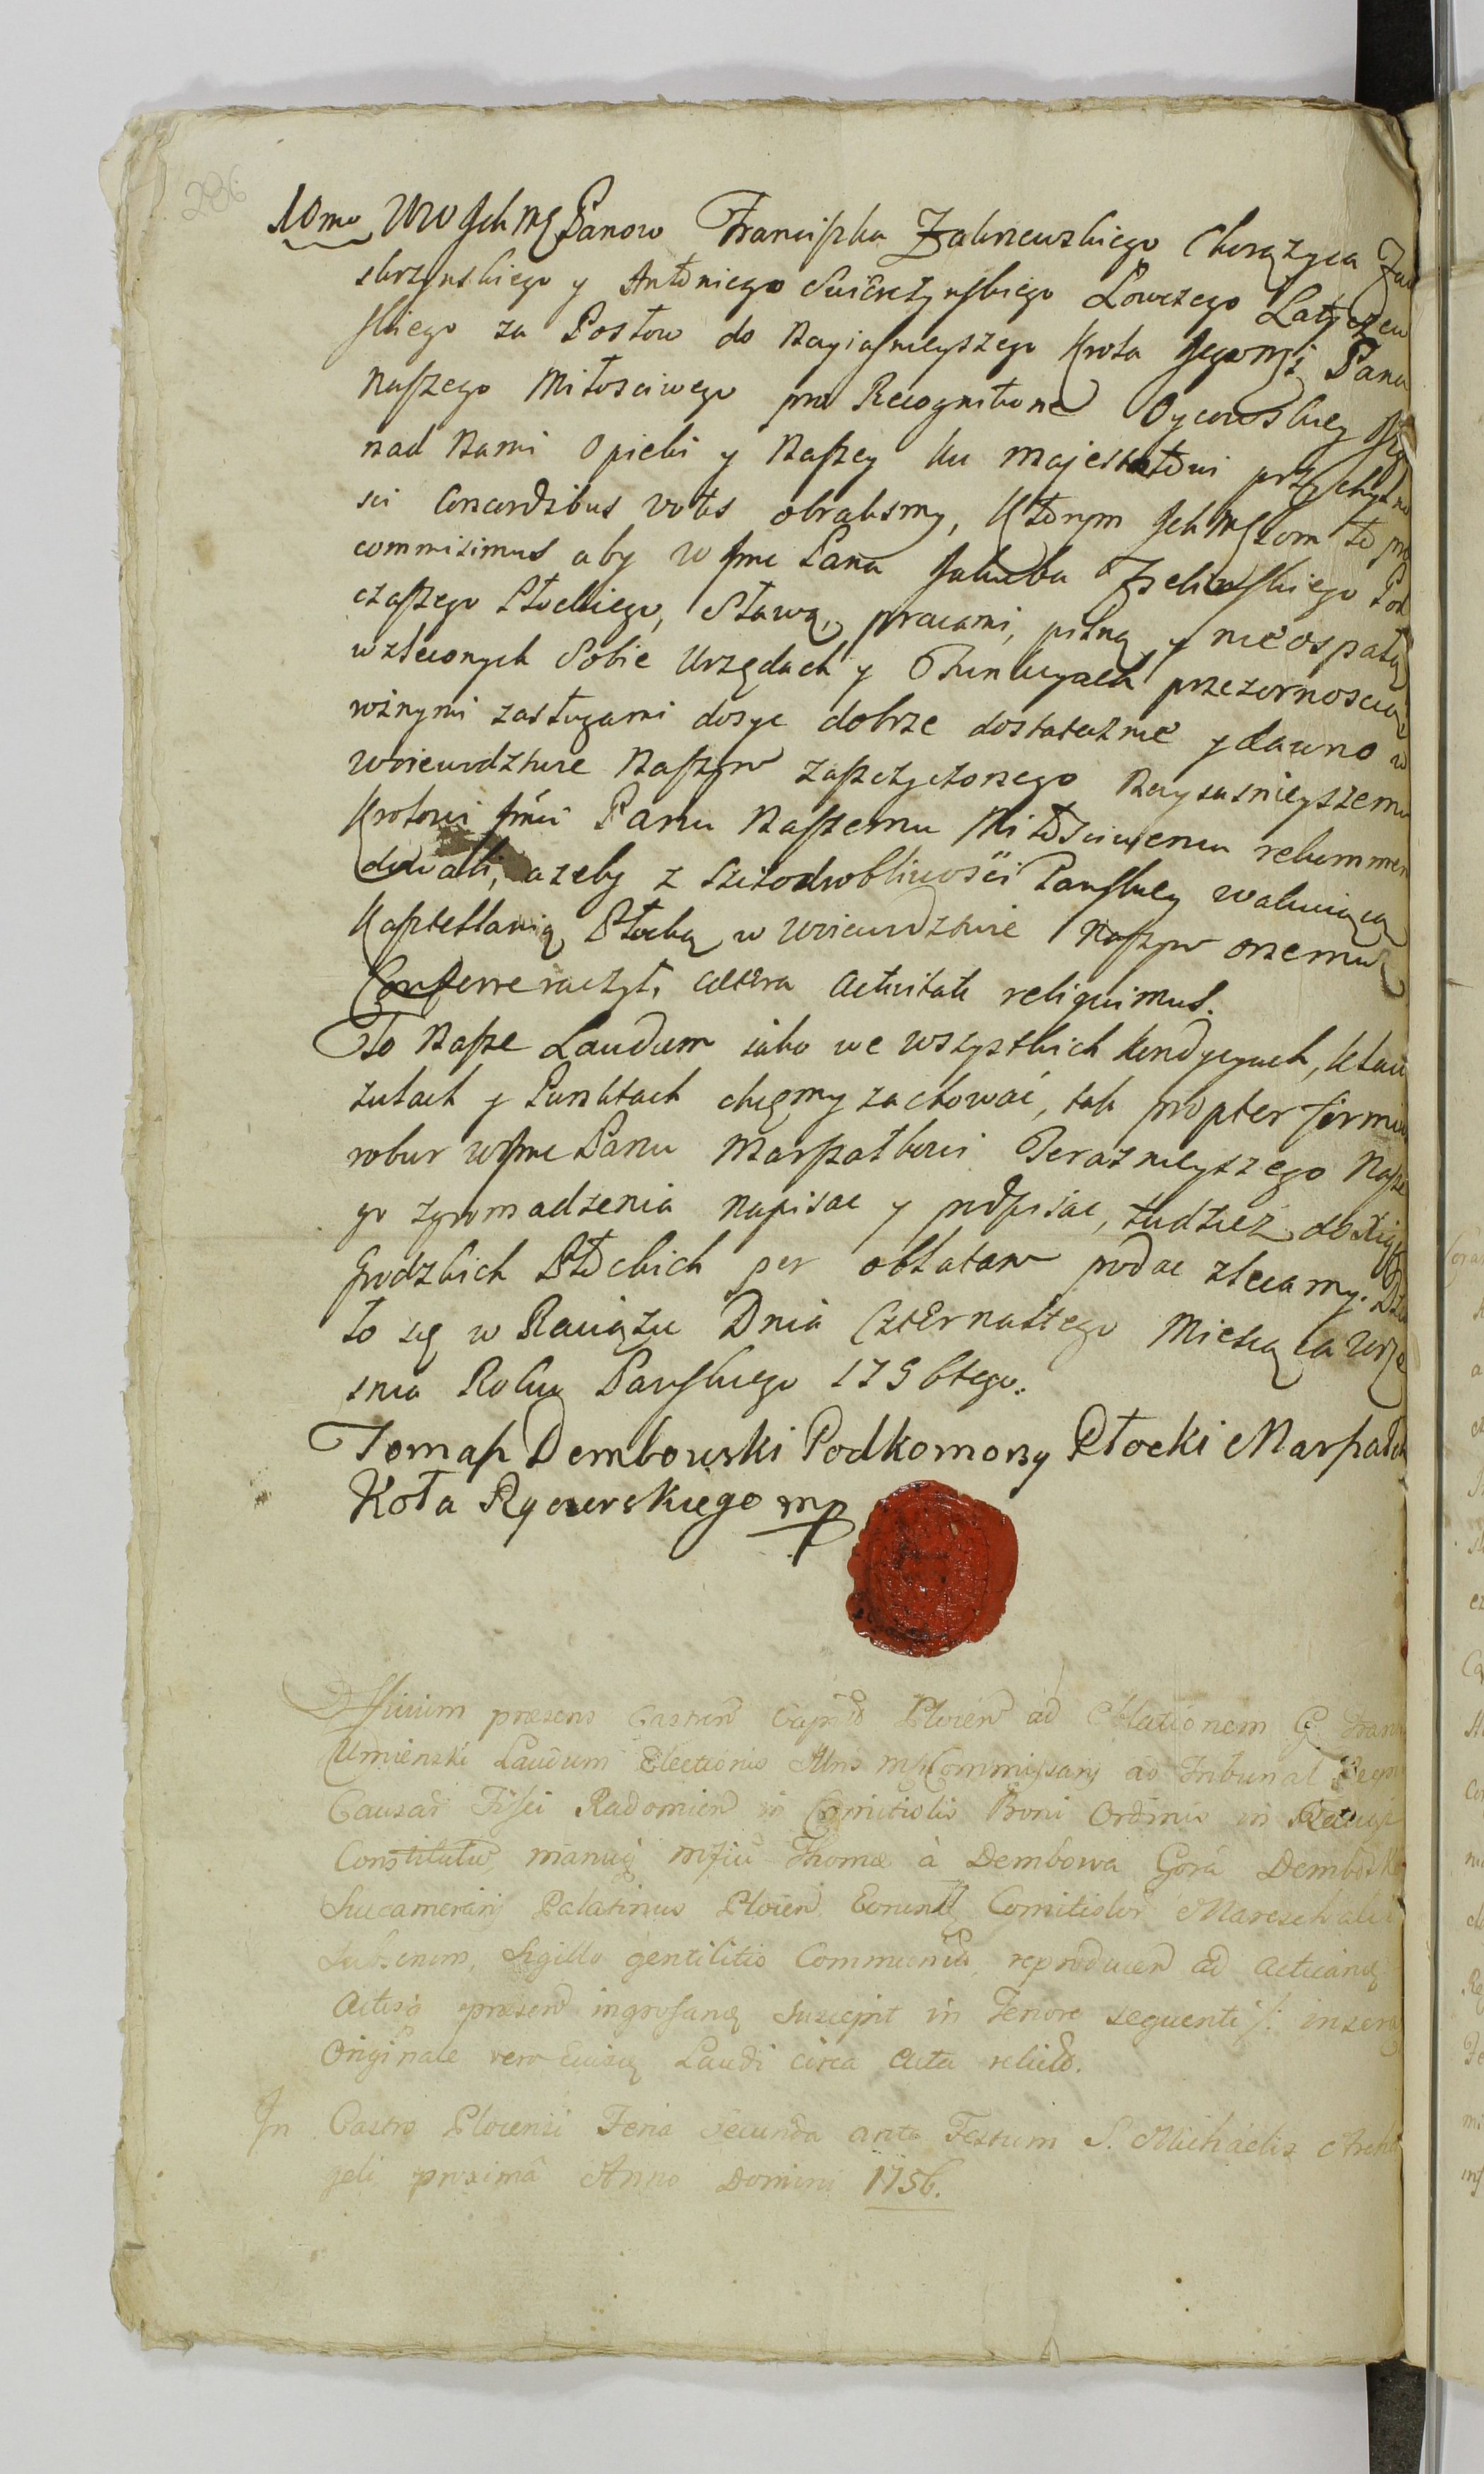 286
10mo Ww Ich Mę Panow Franciszka Zakrzewskiego Chorązyca Zak
skrzynskiego y Antoniego Swierczynskiego Łowczego Latyczew
skiego za Posłow do Nayiasnieyszego Krola Jegomsi Pana
Naszego Miłosciwego pro Recognitione Oycowskiey
nad Nami Opieki y Naszey ku Majestatowi przychylno
sci Concordibus votis obralismy, Ktorym Ich Męiom to pro
commisimus aby W Jmc Pana Jakuba Zielinskiego Pod
czaszego Płockiego, Sławą, pracami, pilną y nieospałą
w zleconych Sobie Urzędach y Funkcyach przezornoscią
roznymi zasługami dosyc dobrze dostatecznie y dawno w
Woiewodztwie Naszym zaszczyconego Nayiasnieyszemu
Krolowi Jmci Panu Naszemu Miłosciwemu rekommen
dowali, azeby z Szczodrobliwosci Panskiey wakuiącą
Kasztellanią Płocką w Woiewodztwie Naszym onemu
Conferre raczył, caetera activitati relinquimus.
To Nasze Laudum iako we wszystkich Kondycyach, Klau
zulach y Punktach chcemy zachować, tak propter firmius
robur WJmc Panu Marszałkowi Teraznieyszego Nasze
go zgromadzenia napisac y podpisac, tudziez do Xiąg
Grodzkich Płockich per oblatam podac zlecamy. Dzia
ło się w Raciązu Dnia Czternastego Miesiąca Wrze
snia Roku Panskiego 1756tego.
Tomasz Dembowski Podkomorzy Płocki Marszałek
Koła Rycerskiego mp
Officium praesens Castren Capit Plocen ad Oblationem G. Fran
Umienski Laudum Electionis Mfcorum Commissarij ad Tribunal Regni
Causar Fisci Radomien in Comitiolis Boni Ordinis in Raciąż
Constitutum, manuq Mfci Thomae à Dembowa Gorá Dembowski
Succamerarij Palatinus Plocen Eorundq Comitiolor Mareschalci
Subscriptum, Sigillo gentilitio Communitum, reproducen ad acticandq
Actisq praesen ingrossandq Suscepit in Tenore sequenti /: inserat
Originale vero Eiusdq Laudi circa Acta relicto.
In Castro Plocensi Feria Secunda ante Festum S. Michaelis Archan
geli proxima Anno Domini 1756.